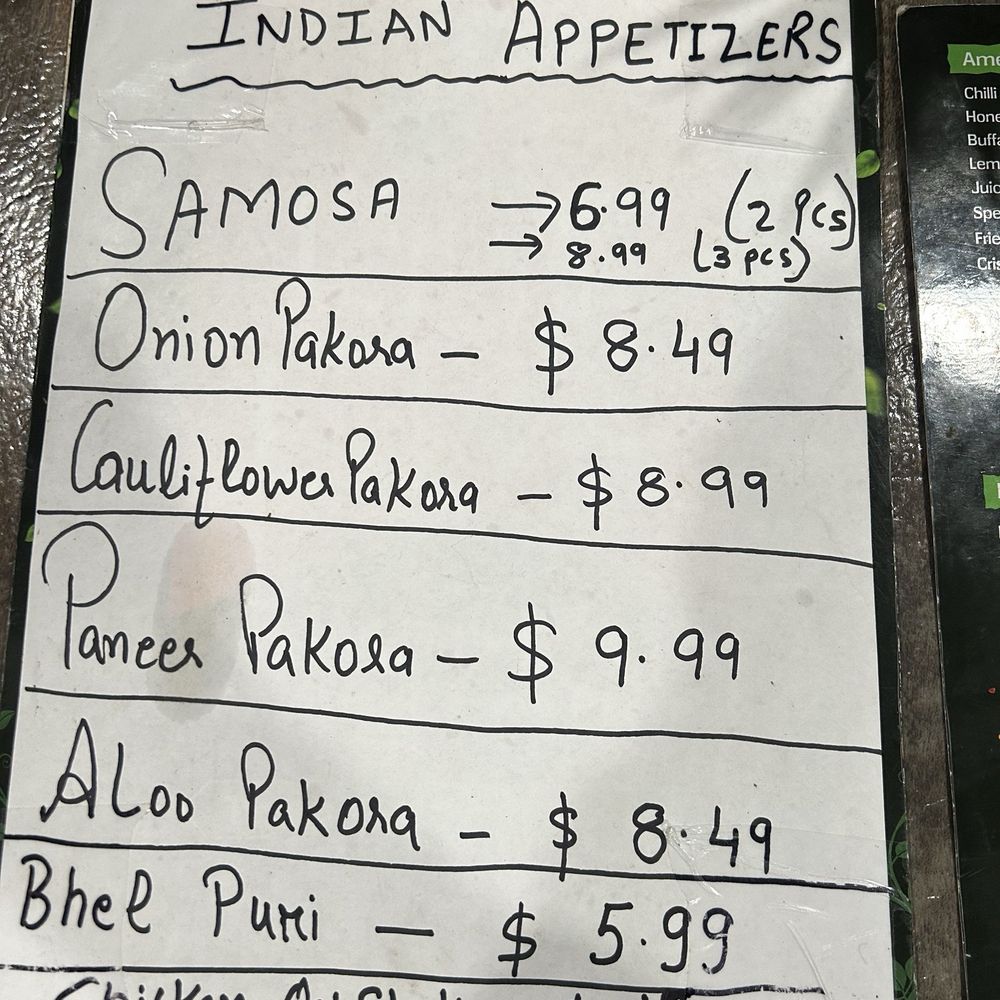 INDIAN APPETIZERS
SAMOSA → 6.99 (2 Pcs)
→ 8.99 (3 pcs)
Onion Pakora - $ 8.49
Cauliflower Pakora - $ 8.99
Paneer Pakora - $ 9.99
ALoo Pakora - $ 8.49
Bhel Puri - $ 5.99
Chicken
Chilli